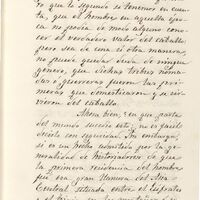 ro que lo segundo si tenemos en cuen-
ta, que el hombre en aquella épo-
ca no podia de modo alguno cono-
cer el verdadero valor del caballo
pero sea de una ú otra manera,
no puede quedar duda de ningun
genero, que dichas tribus noma-
das y guerreras fueron las pri-
meras que domesticaron y se sir-
vieron del caballo.
Ahora bien: en que parte
del mundo sucedió esto; no es facil
decirlo con seguridad. Sin embargo,
si es un hecho admitido por la ge-
neralidad de historiadores de que
la primera residencia del hombre,
fué una gran llanura del Asia
Central situada entre el Eufrates
y el Tigris,